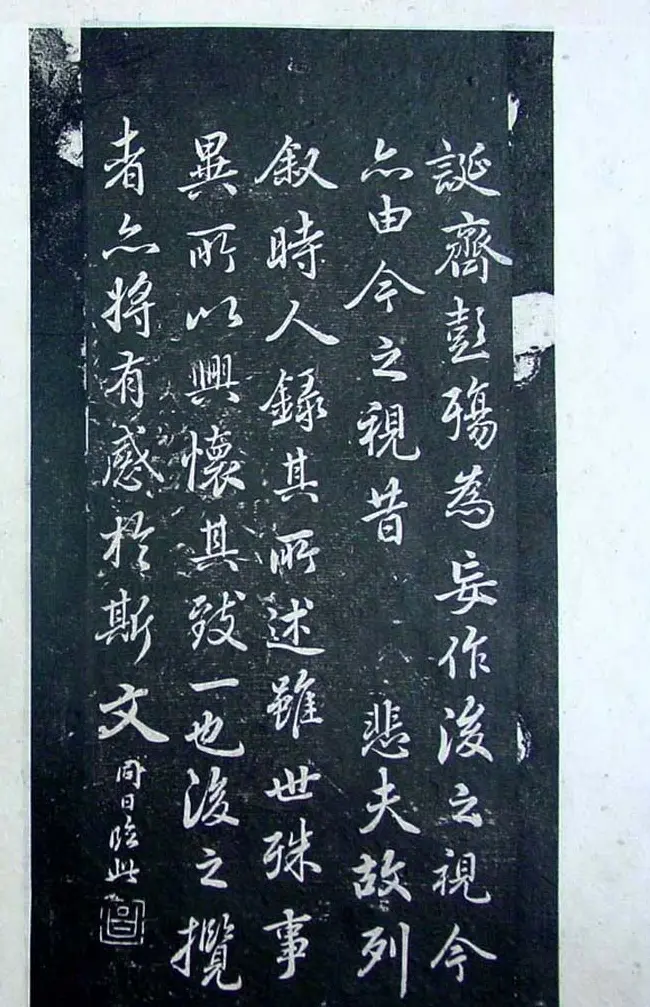 誕齊彭殤為妄作後之視今
亦由今之視昔　悲夫故列
敘時人錄其所述雖世殊事
異所以興懷其致一也後之攬
者亦將有感於斯文
同日臨此